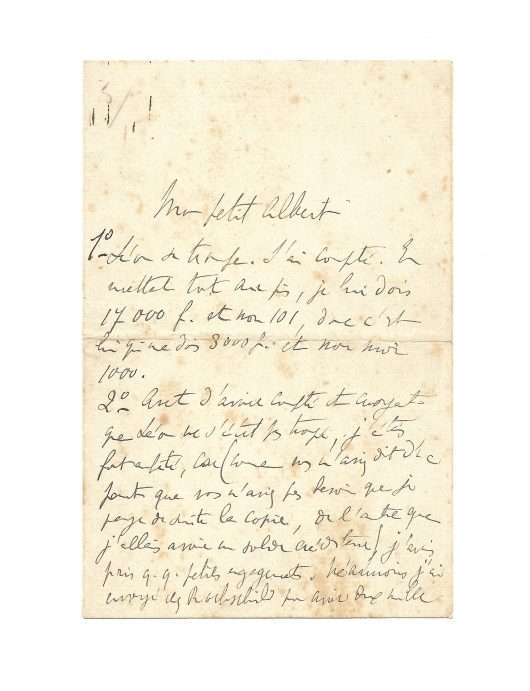 Mon petit Albert
1º Léon se trompe. J'ai compté. En
mettant tout au pis, je lui dois
17 000 f. et non 101, donc c'est
lui qui me doit 8000 f. et non moi
1000.
2º Avant d'avoir compté et croyant
que Léon ne s'était pas trompé, j'étais
fort embêté, car (comme vous m'aviez dit d'une
part que vous n'aviez pas besoin que je
paye de suite la copie, de l'autre que
j'allais avoir un solde créditeur) j'avais
pris q.q. petits engagements. Néanmoins j'ai
envoyé chez Rothschild pour avoir dix mille